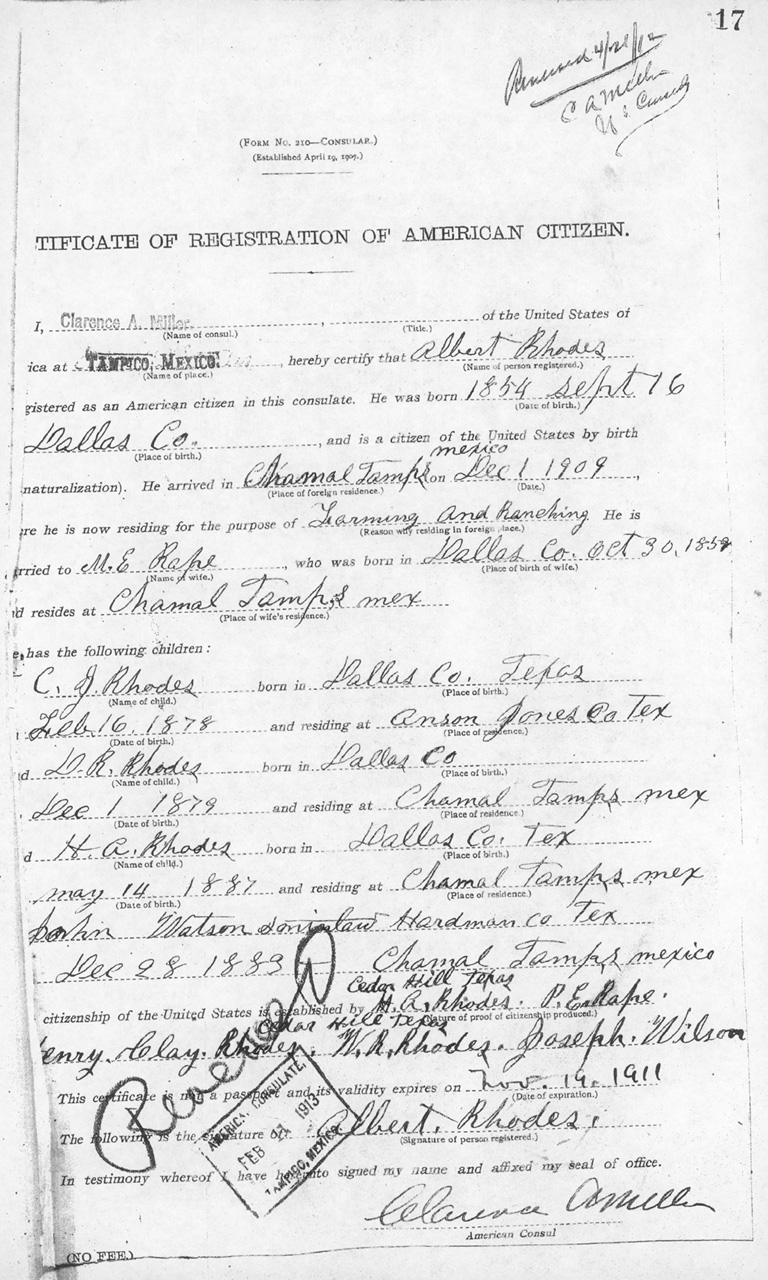 17
Renewed 4/21/12
C A Miller
U S Consul
(FORM NO. 210—CONSULAR.)
(Established April 19, 1907.)
TIFICATE OF REGISTRATION OF AMERICAN CITIZEN.
I, Clarence A. Miller. , of the United States of
(Name of consul.) (Title.)
ica at TAMPICO, MEXICO. , hereby certify that Albert Rhodes
(Name of place.) (Name of person registered.)
gistered as an American citizen in this consulate. He was born 1854 Sept 16
(Date of birth.)
Dallas Co. , and is a citizen of the United States by birth
(Place of birth.)
mexico
naturalization). He arrived in Chamal Tamps on Dec 1 1909 ,
(Place of foreign residence.) (Date.)
re he is now residing for the purpose of Farming and Ranching. He is
(Reason why residing in foreign place.)
rried to M. E Rape , who was born in Dallas Co. Oct 30, 1859
(Name of wife.) (Place of birth of wife.)
d resides at Chamal Tamps mex
(Place of wife's residence.)
e, has the following children:
C. J. Rhodes born in Dallas Co. Texas
(Name of child.) (Place of birth.)
Feb 16, 1878 and residing at Anson Jones Co Tex
(Date of birth.) (Place of residence.)
d D. R. Rhodes born in Dallas Co
(Name of child.) (Place of birth.)
Dec 1 1879 and residing at Chamal Tamps mex
(Date of birth.) (Place of residence.)
d H. A. Rhodes born in Dallas Co. Tex
(Name of child.) (Place of birth.)
may 14 1887 and residing at Chamal Tamps mex
(Date of birth.) (Place of residence.)
John Watson soninlaw Hardman co Tex
Dec 28 1883 Chamal Tamps mexico
Cedar Hill Texas
citizenship of the United States is established by H. A. Rhodes. P. E. Rape.
(Nature of proof of citizenship produced.)
Cedar Hill Texas
enry. Clay. Rhodes. W. R. Rhodes. Joseph. Wilson
This certificate is not a passport and its validity expires on Nov. 19. 1911
(Date of expiration.)
Renewed
The following is the signature of Albert. Rhodes.
(Signature of person registered.)
AMERICA. CONSULATE
FEB 1913
TAMPICO, MEXICO
In testimony whereof I have hereunto signed my name and affixed my seal of office.
Clarence A Miller
American Consul
(NO FEE.)